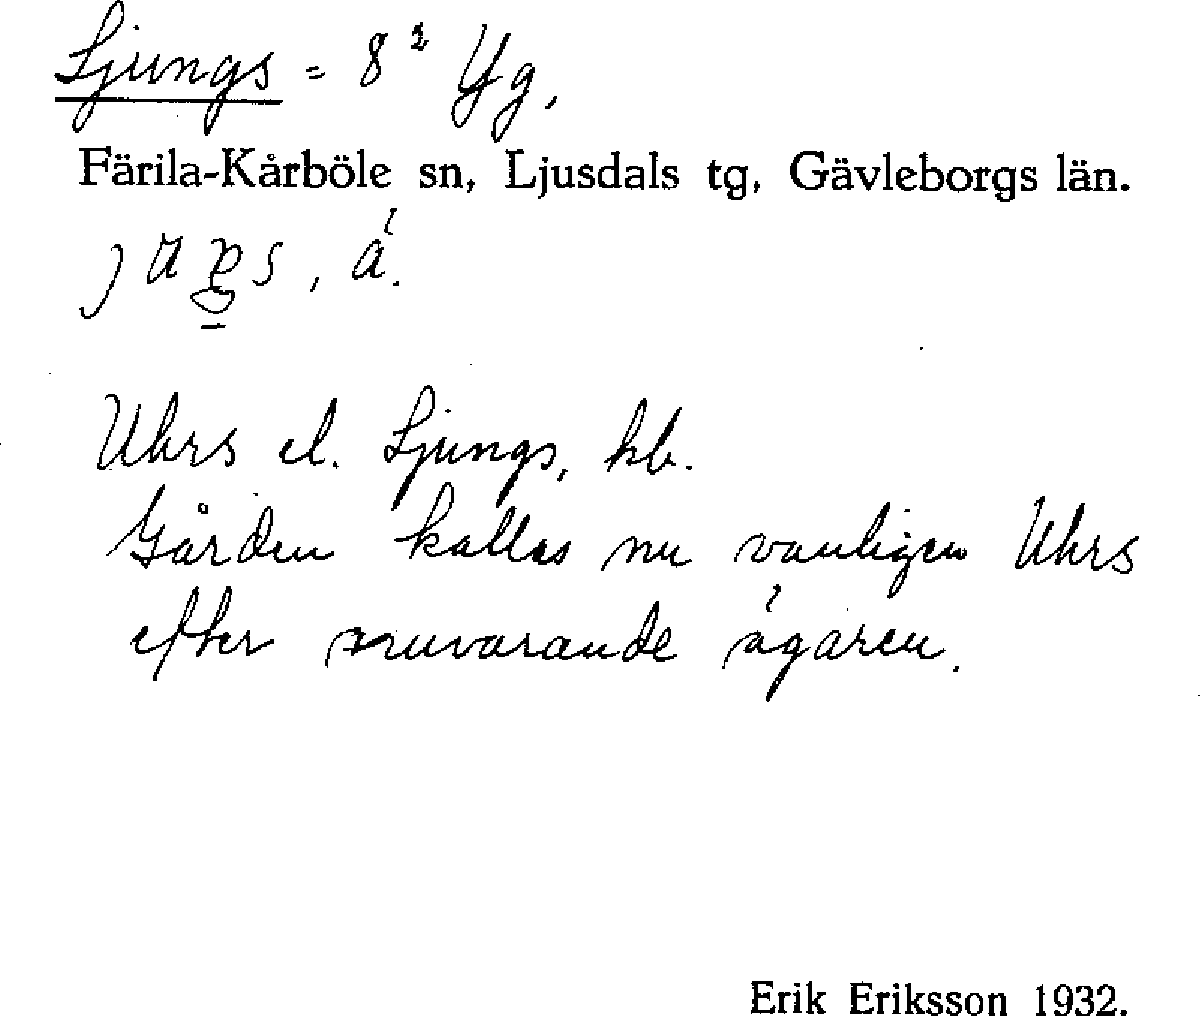 Ljungs = 8² Yg.
Färila-Kårböle sn, Ljusdals tg, Gävleborgs län.
Uhrs el. Ljungs, kb.
Gården kallas nu vanligen Uhrs
efter nuvarande ägaren.
Erik Eriksson 1932.